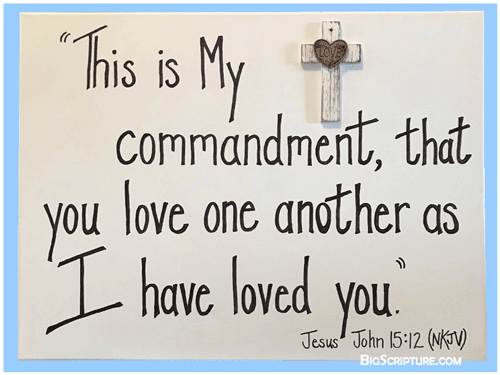 "This is My
LOVE
commandment, that
you love one another as
I have loved you."
Jesus John 15:12 (NKJV)
BIGSCRIPTURE.COM